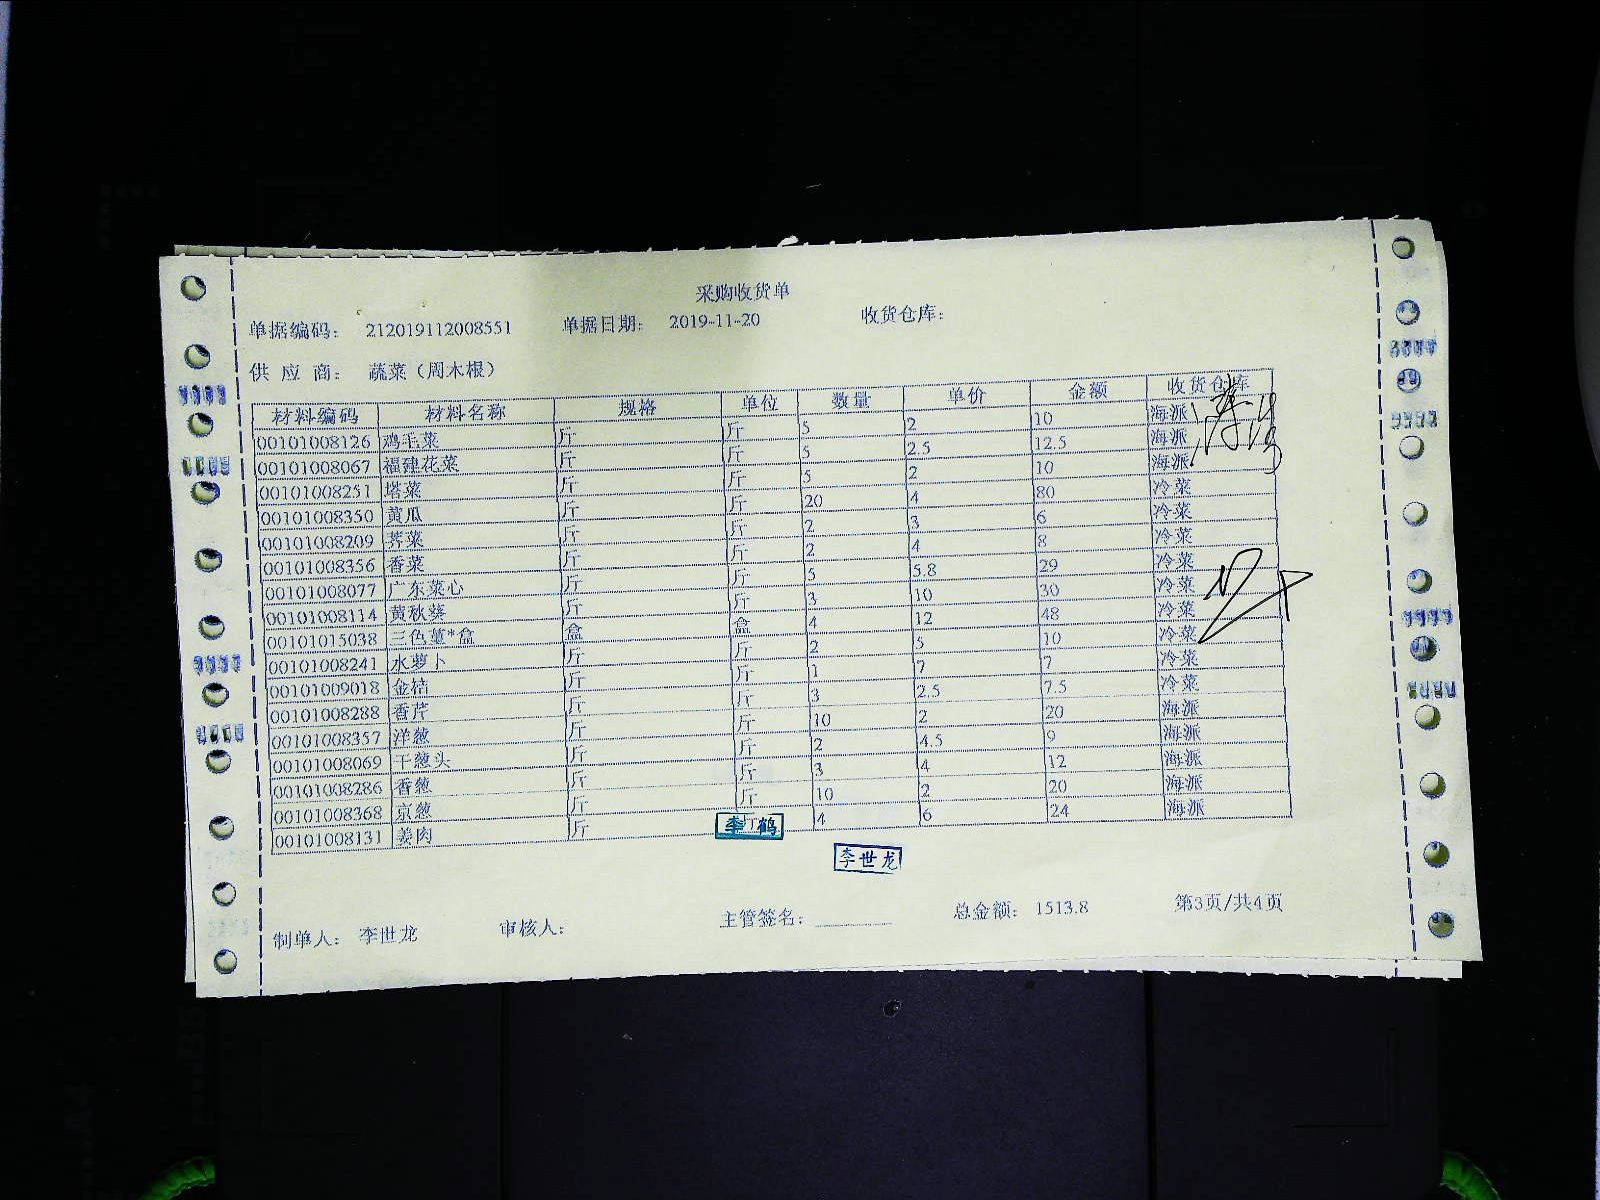 采购收货单
单据编码： 212019112008551 单据日期： 2019-11-20 收货仓库：
供 应 商： 蔬菜（周木根）
材料编码 材料名称 规格 单位 数量 单价 金额 收货仓库
00101008126 鸡毛菜 斤 斤 5 2 10 海派
00101008067 福建花菜 斤 斤 5 2.5 12.5 海派
00101008251 塔菜 斤 斤 5 2 10 海派
00101008350 黄瓜 斤 斤 20 4 80 冷菜
00101008209 荠菜 斤 斤 2 3 6 冷菜
00101008356 香菜 斤 斤 2 4 8 冷菜
00101008077 广东菜心 斤 斤 5 5.8 29 冷菜
00101008114 黄秋葵 斤 斤 3 10 30 冷菜
00101015038 三色堇*盒 盒 盒 4 12 48 冷菜
00101008241 水萝卜 斤 斤 2 5 10 冷菜
00101009018 金桔 斤 斤 1 7 7 冷菜
00101008288 香芹 斤 斤 3 2.5 7.5 冷菜
00101008357 洋葱 斤 斤 10 2 20 海派
00101008069 干葱头 斤 斤 2 4.5 9 海派
00101008286 香葱 斤 斤 3 4 12 海派
00101008368 京葱 斤 斤 10 2 20 海派
00101008131 姜肉 斤 4 6 24 海派
李世龙
制单人： 李世龙 审核人： 主管签名： 总金额： 1513.8 第3页/共4页